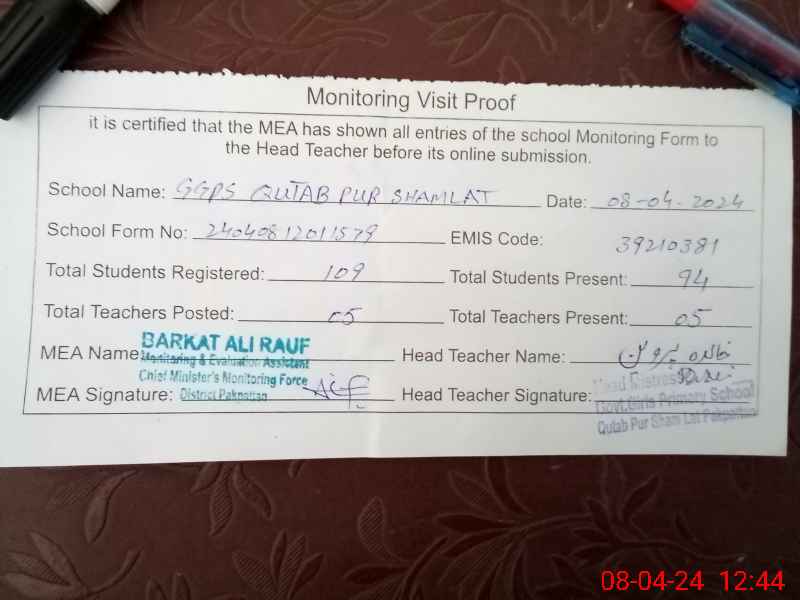 Monitoring Visit Proof
it is certified that the MEA has shown all entries of the school Monitoring Form to
the Head Teacher before its online submission.
School Name: GGPS QUTAB PUR SHAMLAT Date: 08-04-2024
School Form No: 24040812011579 EMIS Code: 39210381
Total Students Registered: 109 Total Students Present: 94
Total Teachers Posted: 05 Total Teachers Present: 05
BARKAT ALI RAUF
MEA Name: Monitoring & Evaluation Assistant Head Teacher Name: خالدہ پروین
Chief Minister's Monitoring Force
MEA Signature: District Pakpattan Head Teacher Signature:
Head Mistress
Govt. Girls Primary School
Qutab Pur Sham Lat Pakpattan
08-04-24 12:44